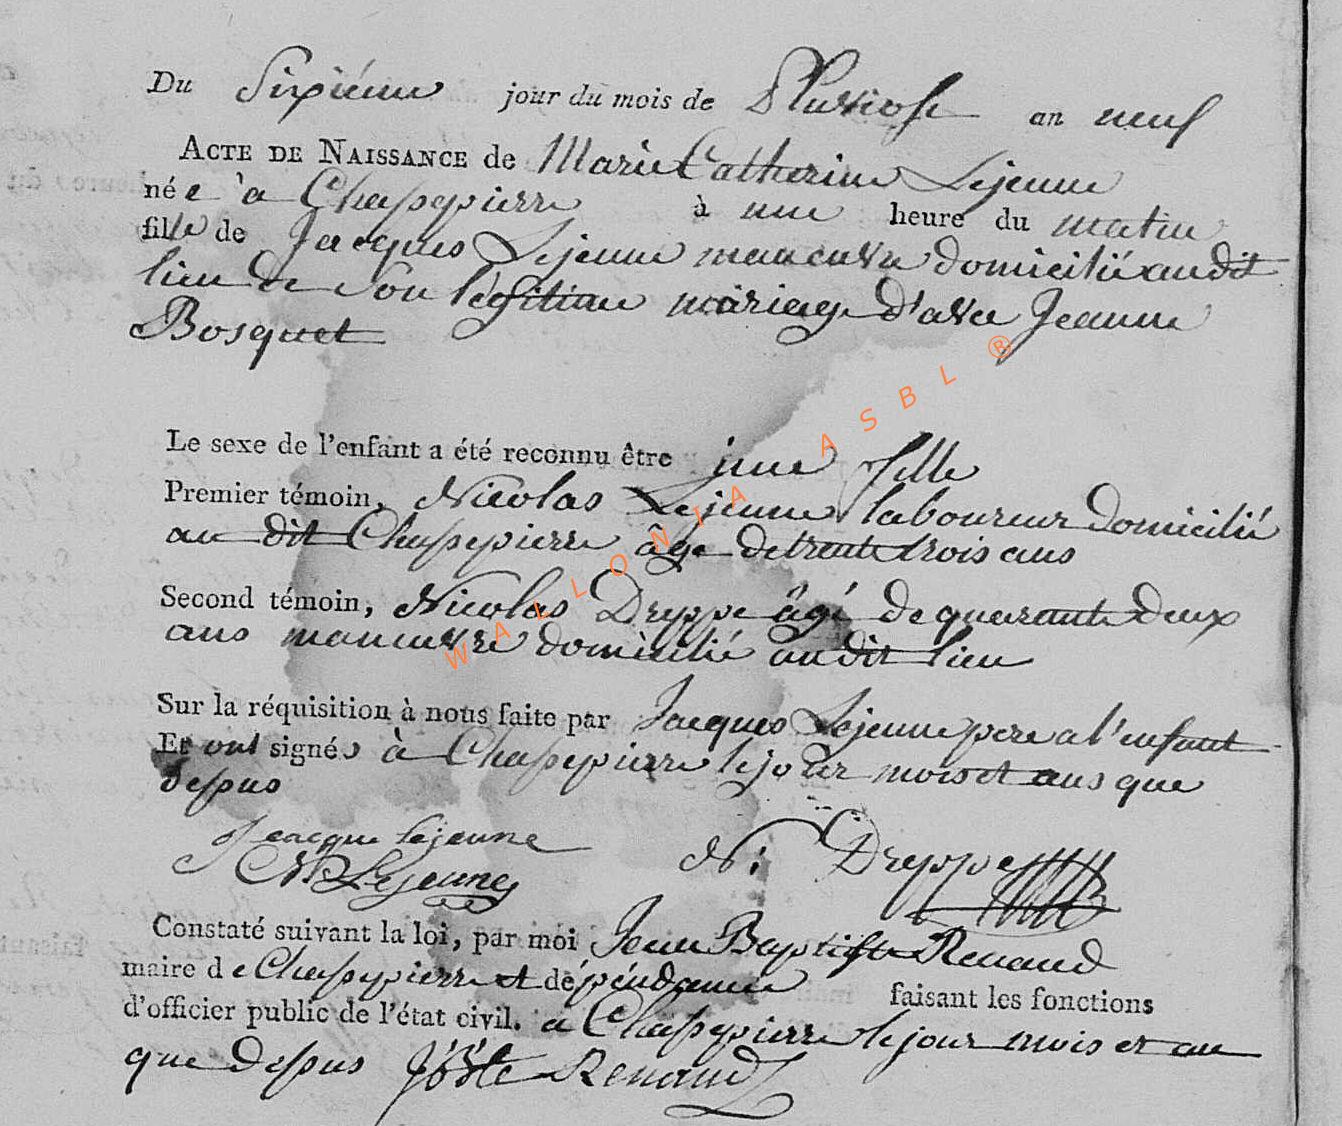 Du Sixiéme jour du mois de Pluviose an neuf
ACTE DE NAISSANCE de Marie Catherine Lejeune
née à Chassepierre à une heure du matin
fille de Jacques Lejeune manœuvre domicilié au dit
lieu de Son légitime mariage d'avec Jeanne
Bosquet
Le sexe de l'enfant a été reconnu être une fille
Premier témoin, Nicolas Lejeune laboureur domicilié
au dit Chassepierre âge de trente trois ans
Second témoin, Nicolas Dreppe âgé de quarante deux
ans manœuvre domicilié au dit lieu
Sur la réquisition à nous faite par Jacques Lejeune pere a l'enfant
Et ont signés à Chassepierre le jour mois et ans que
dessus
Jeacque Lejeune
N Lejeune
N: Dreppe
Constaté suivant la loi, par moi Jean Baptiste Renaud
maire de Chassepierre et dépéndance faisant les fonctions
d'officier public de l'état civil. a Chassepierre le jour mois et an
que dessus JBste Renaud
WALLONIA ASBL ®